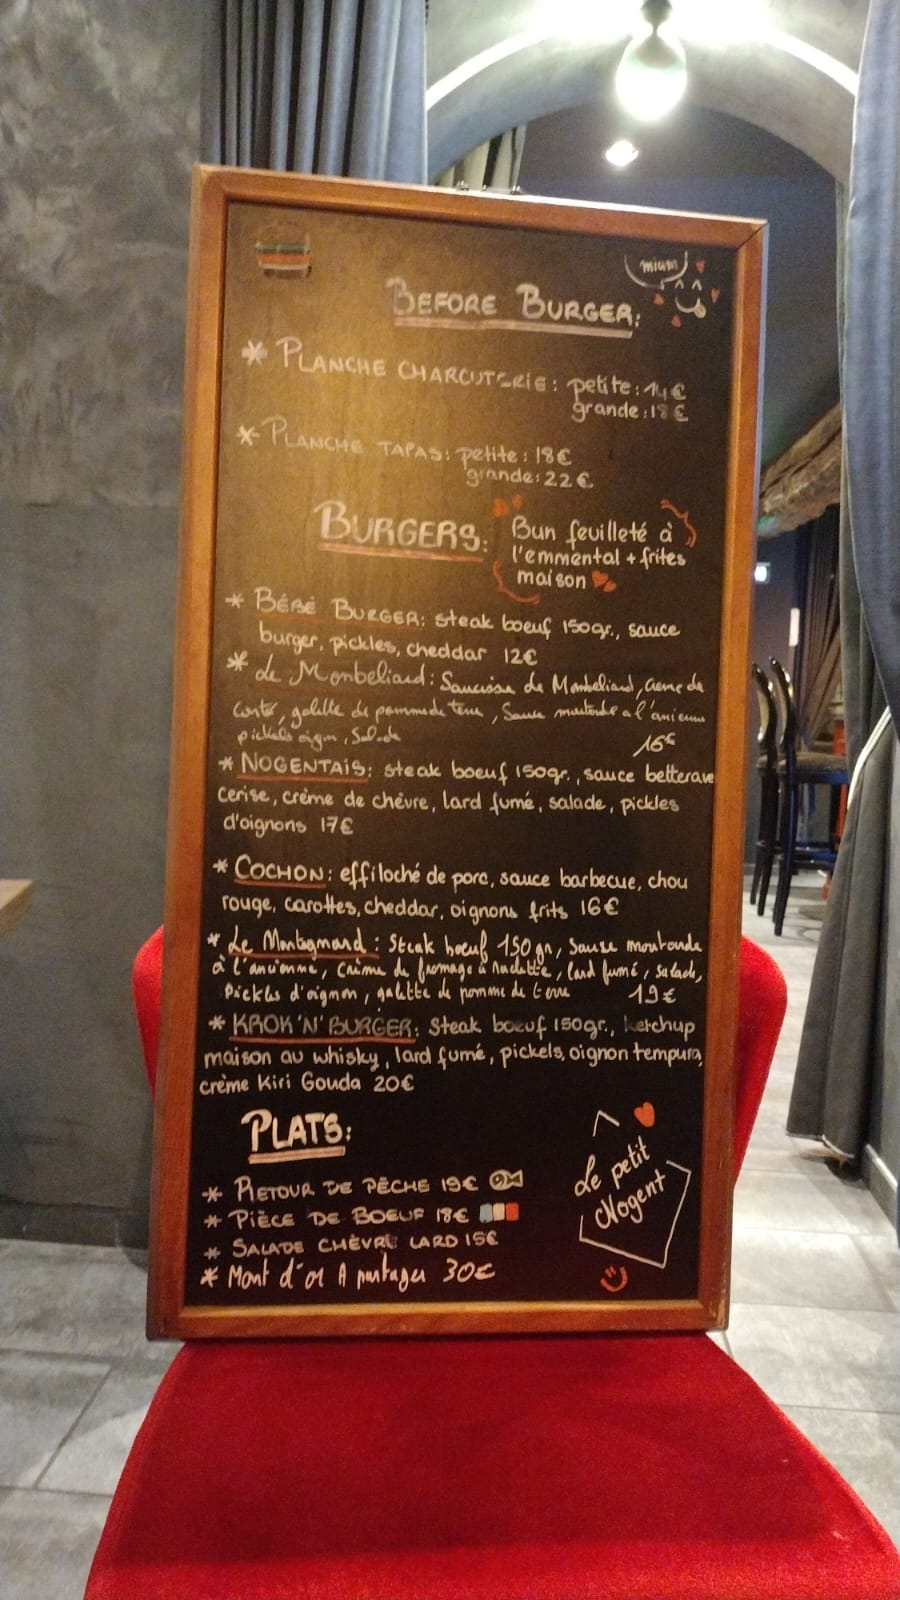 mium
BEFORE BURGER:
* PLANCHE CHARCUTERIE: petite: 14€
grande: 18€
* PLANCHE TAPAS: petite: 18€
grande: 22€
BURGERS:
Bun feuilleté à
l'emmental + frites
maison
* BÉBÉ BURGER: steak boeuf 150gr., sauce
burger, pickles, cheddar 12€
* Le Monbeliard: Saucisse de Montbeliard, creme de
comté, galette de pomme de terre, Sauce moutarde a l'ancienne
pickels oignon, Salade
16€
* NOGENTAIS: steak boeuf 150gr., sauce betterave
cerise, crème de chèvre, lard fumé, salade, pickles
d'oignons 17€
* COCHON: effiloché de porc, sauce barbecue, chou
rouge, carottes, cheddar, oignons frits 16€
* Le Montagnard: Steak boeuf 150 gr, Sauce moutarde
à l'ancienne, Crème de fromage à raclette, lard fumé, salade,
Pickles d'oignon, galette de pomme de terre 19€
* KROK'N'BURGER: Steak boeuf 150gr., ketchup
maison au whisky, lard fumé, pickels, oignon tempura,
crème Kiri Gouda 20€
PLATS:
* RETOUR DE PÊCHE 19€
* PIÈCE DE BOEUF 18€
* SALADE CHÈVRE LARD 15€
* Mont d'or A partager 30€
Le petit
Nogent